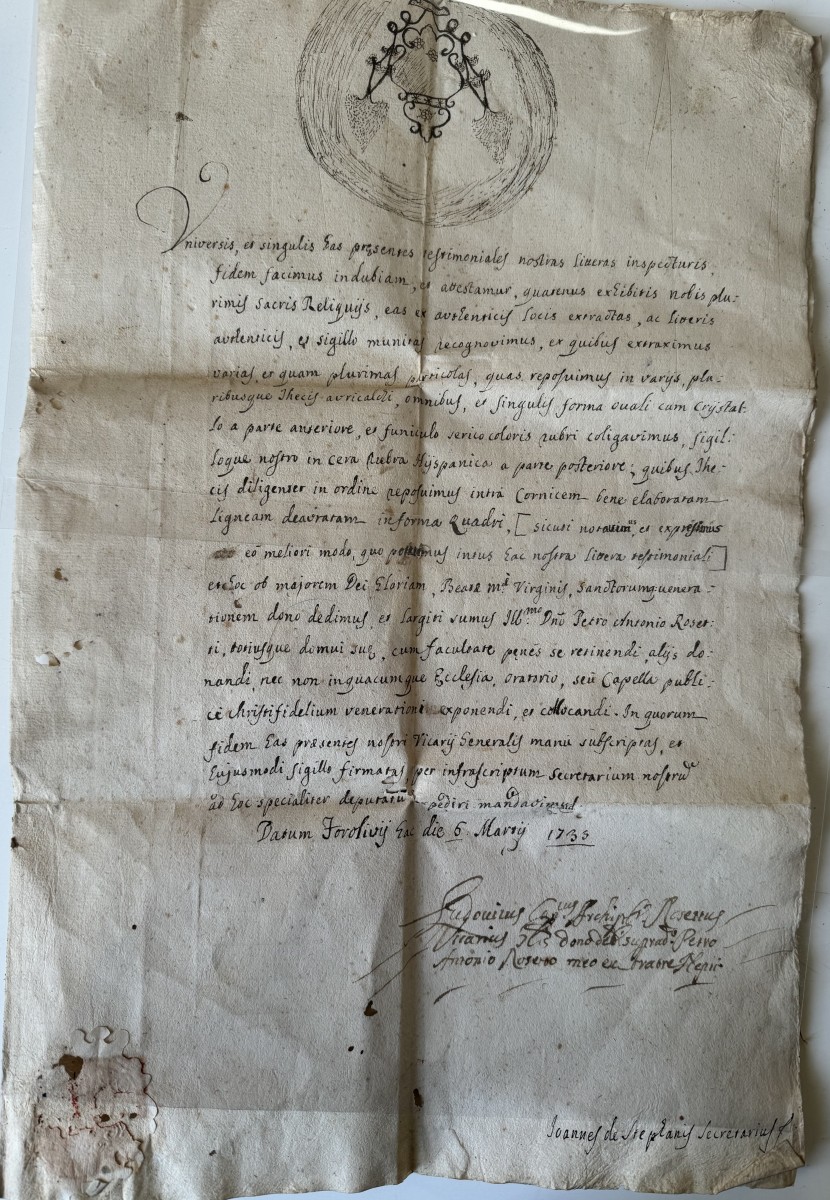 Universis, et singulis has præsentes testimoniales nostras litteras inspecturis
fidem facimus indubiam, et attestamur, quatenus exhibitis nobis plu-
rimis Sacris Reliquijs, eas ex authenticis locis extractas, ac litteris
authenticis, et sigillo munitas recognovimus, ex quibus extraximus
varias, et quam plurimas particolas, quas reposuimus in varijs, plu-
ribusque Thecis auricalchi, omnibus, et singulis forma ovali cum Crystal-
lo a parte anteriore, et funiculo serico coloris rubri coligavimus, sigil-
loque nostro in cera rubra Hispanica a parte posteriore; quibus The-
cis diligenter in ordine reposuimus intra Cornicem bene elaboratam
Ligneam deauratam in forma Quadri, [sicuti notavimus, et expressimus
eo meliori modo, quo potuimus intus hac nostra littera testimoniali]
et hoc ob majorem Dei Gloriam, Beatæ Mᵃᵉ Virginis, Sanctorumq; venera-
tionem dono dedimus, et largiti sumus Illᵐᵒ Dnõ Petro Antonio Roset-
ti, totiusque domui suę, cum facultate penès se retinendi, alijs do-
nandi, nec non in quacumque Ecclesia, Oratorio, seù Capella publi-
cè Christifidelium venerationi exponendi, et collocandi. In quorum
fidem has præsentes nostri Vicarij Generalis manu subscriptas, et
hujusmodi sigillo firmatas per infrascriptum secretarium nostrũ
ad hoc specialiter deputatũ expediri mandavimus
Datum Forolivij hac die 6 Martij 1733
Ludovicus Canᶜᵘˢ Archipʳ Rosettus
Vicarius Glis dono dedi supradᵒ Petro
Antonio Rosetto meo ex fratre Nepti
Joannes de Stephanis Secretarius